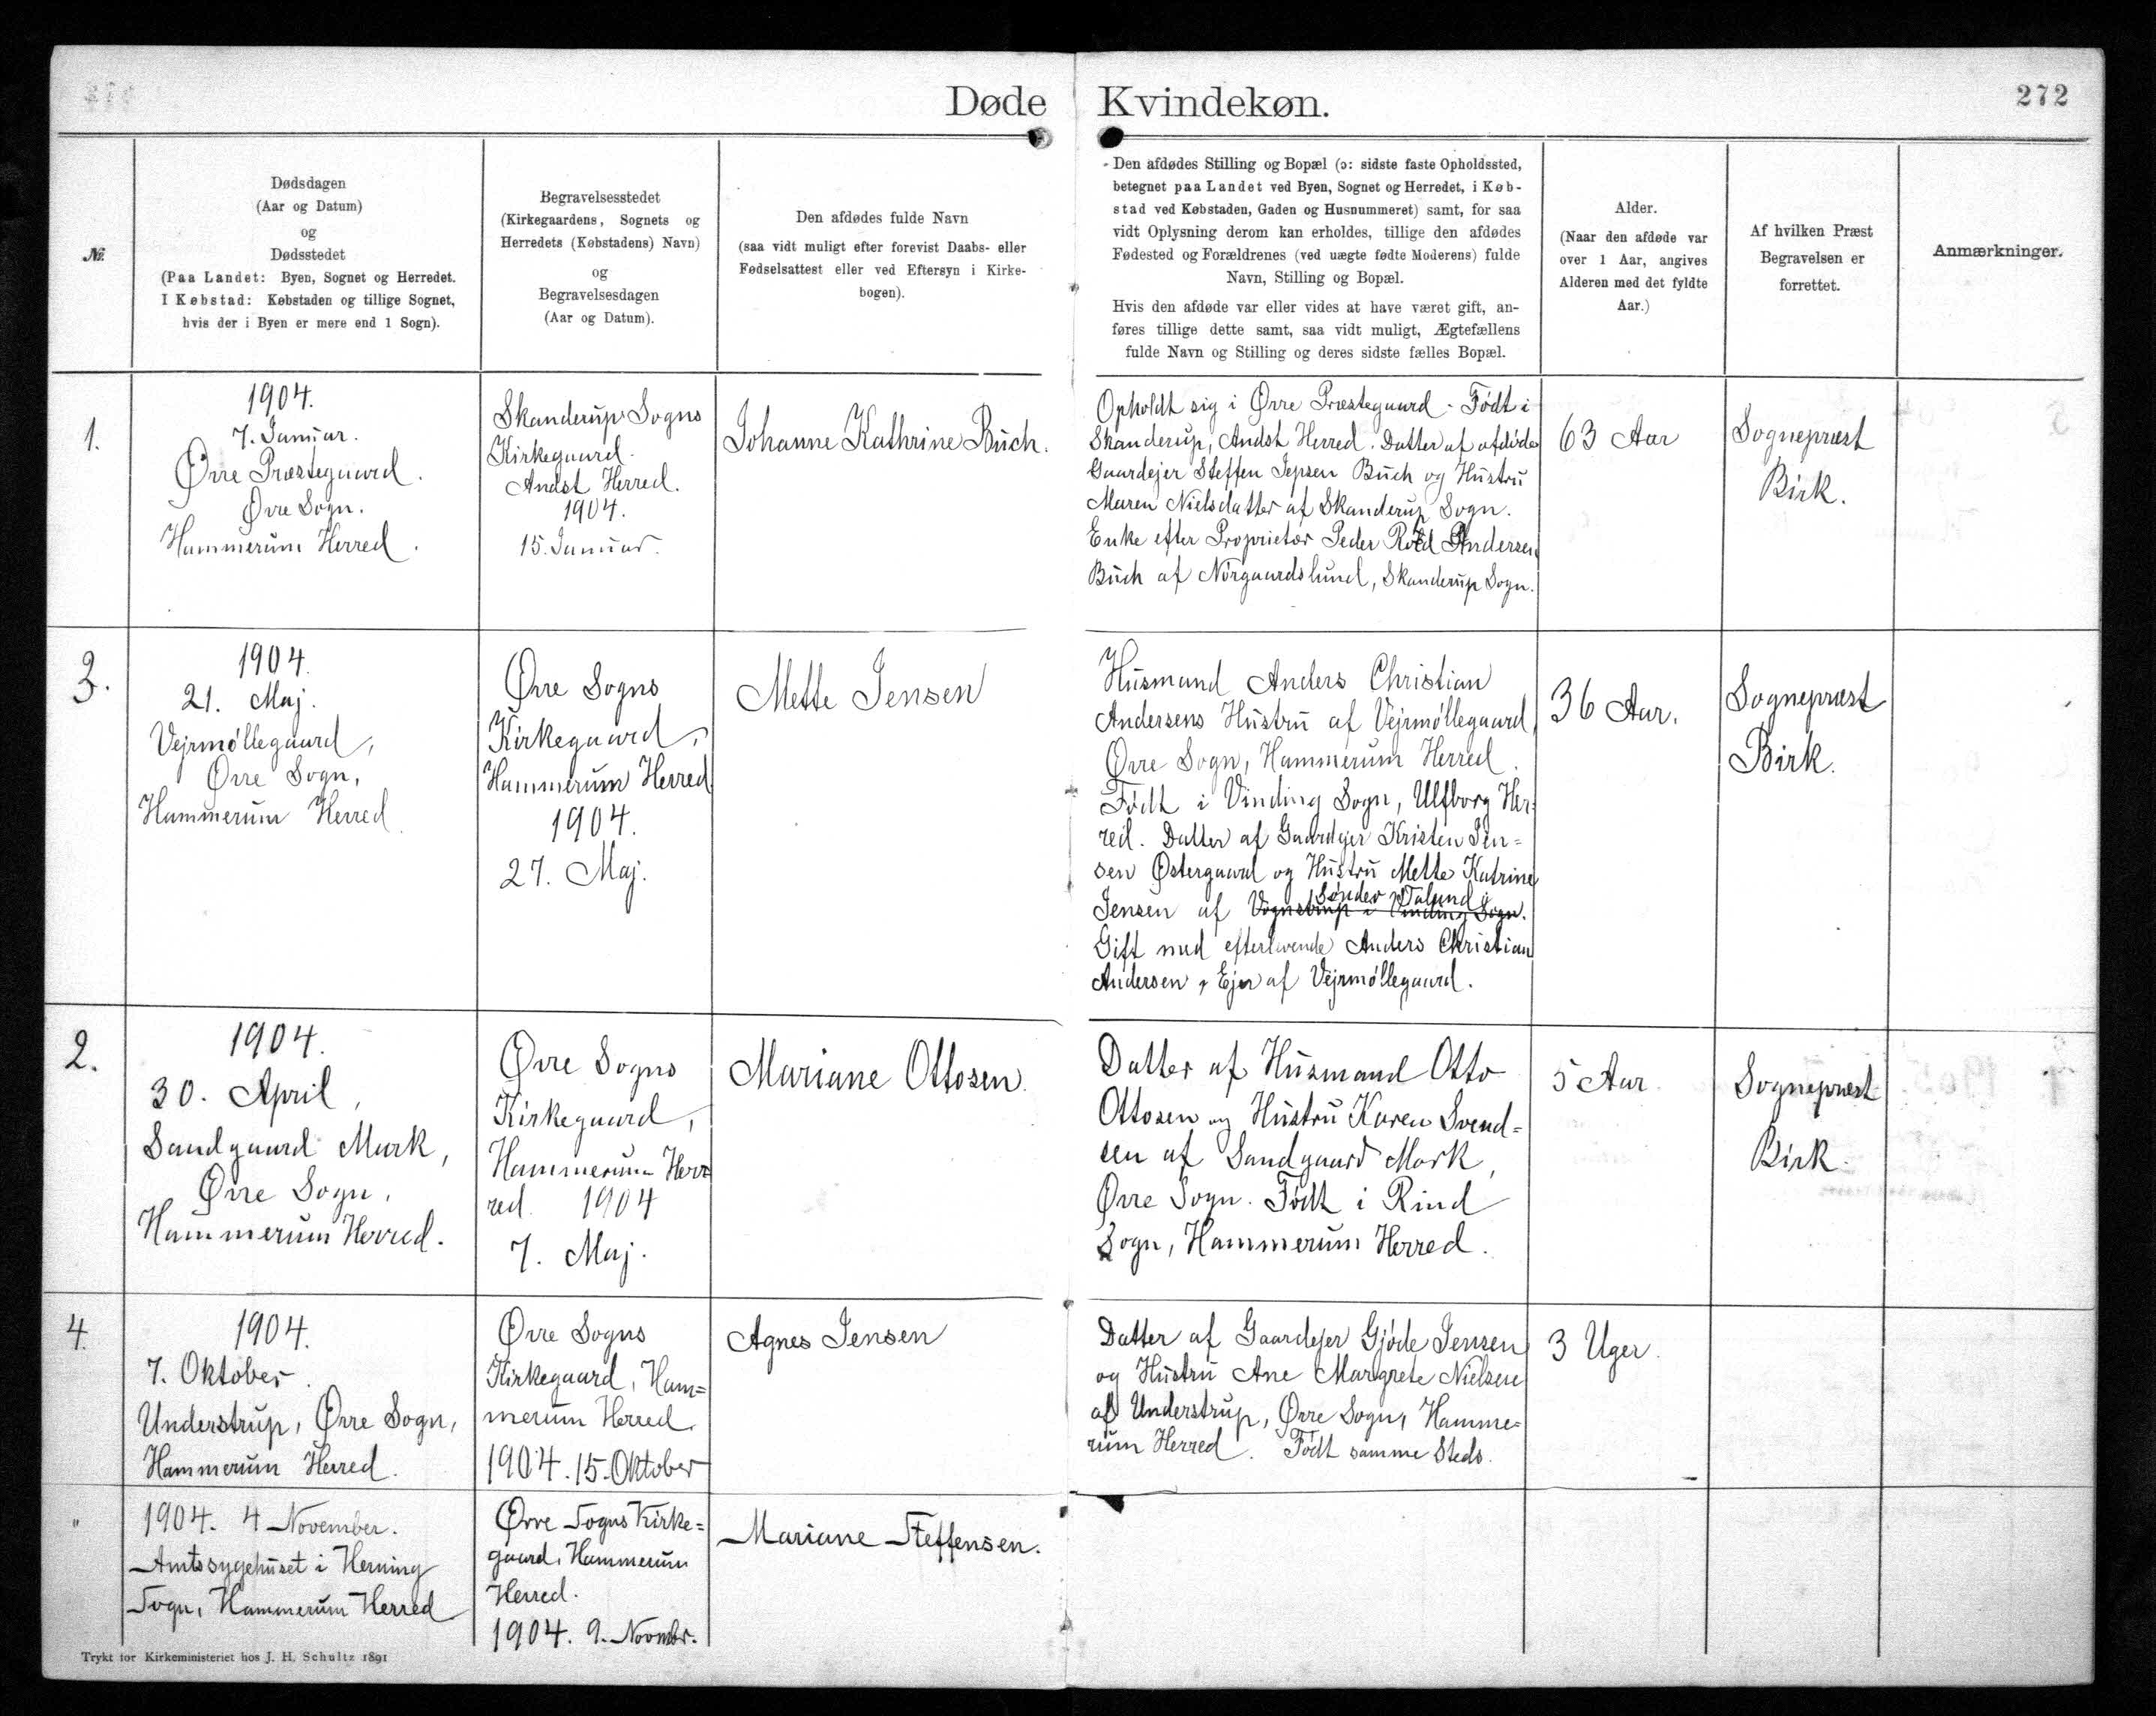 Døde Kvindekøn.
272
№
Dødsdagen
(Aar og Datum)
og
Dødsstedet
(Paa Landet: Byen, Sognet og Herredet.
I Købstad: Købstaden og tillige Sognet,
hvis der i Byen er mere end 1 Sogn).
Begravelsesstedet
(Kirkegaardens, Sognets og
Herredets (Købstadens) Navn)
og
Begravelsesdagen
(Aar og Datum).
Den afdødes fulde Navn
(saa vidt muligt efter forevist Daabs- eller
Fødselsattest eller ved Eftersyn i Kirke-
bogen).
Den afdødes Stilling og Bopæl (ɔ: sidste faste Opholdssted,
betegnet paa Landet ved Byen, Sognet og Herredet, i Køb-
stad ved Købstaden, Gaden og Husnummeret) samt, for saa
vidt Oplysning derom kan erholdes, tillige den afdødes
Fødested og Forældrenes (ved uægte fødte Moderens) fulde
Navn, Stilling og Bopæl.
Hvis den afdøde var eller vides at have været gift, an-
føres tillige dette samt, saa vidt muligt, Ægtefællens
fulde Navn og Stilling og deres sidste fælles Bopæl.
Alder.
(Naar den afdøde var
over 1 Aar, angives
Alderen med det fyldte
Aar.)
Af hvilken Præst
Begravelsen er
forrettet.
Anmærkninger.
1.
1904.
7. Januar.
Ørre Præstegaard.
Ørre Sogn.
Hammerum Herred.
Skanderup Sogns
Kirkegaard.
Andst Herred.
1904.
15. Januar.
Johanne Kathrine Buch.
Opholdt sig i Ørre Præstegaard - Født i
Skanderup, Andst Herred. Datter af afdøde
Gaardejer Steffen Jepsen Buch og Hustru
Maren Nielsdatter af Skanderup Sogn.
Enke efter Proprietær Peder Andersen
Buch af Nørgaardslund, Skanderup Sogn.
63 Aar
Sognepræst
Birk.
3.
1904.
21. Maj.
Vejrmøllegaard,
Ørre Sogn,
Hammerum Herred
Ørre Sogns
Kirkegaard,
Hammerum Herred
1904.
27. Maj.
Mette Jensen
Husmand Anders Christian
Andersens Hustru af Vejrmøllegaard,
Ørre Sogn, Hammerum Herred.
Født i Vinding Sogn, Ulfborg Her-
red. Datter af Gaardejer Kristen Jen=
sen Østergaard og Hustru Mette Katrine
Sønder Talund i
Jensen af Vognstrup i Vinding Sogn.
Gift med efterlevende Anders Christian
Andersen, Ejer af Vejrmøllegaard.
36 Aar.
Sognepræst
Birk.
2.
1904.
30. April,
Sandgaard Mark,
Ørre Sogn,
Hammerum Herred.
Ørre Sogns
Kirkegaard,
Hammerum Her=
red. 1904
7. Maj.
Mariane Ottosen.
Datter af Husmand Otto
Ottosen og Hustru Karen Svend=
sen af Sandgaard Mark,
Ørre Sogn. Født i Rind
Sogn, Hammerum Herred.
5 Aar.
Sognepræst
Birk.
4.
1904.
7. Oktober.
Understrup, Ørre Sogn,
Hammerum Herred.
Ørre Sogns
Kirkegaard, Ham=
merum Herred.
1904. 15. Oktober
Agnes Jensen
Datter af Gaardejer Gjøde Jensen
og Hustru Ane Margrete Nielsen
af Understrup, Ørre Sogn, Hamme=
rum Herred. Født samme Steds.
3 Uger.
"
1904. 4 November.
Amtssygehuset i Herning
Sogn, Hammerum Herred
Ørre Sogns Kirke=
gaard, Hammerum
Herred.
1904. 9. Novembr.
Mariane Steffensen.
Trykt for Kirkeministeriet hos J. H. Schultz 1891